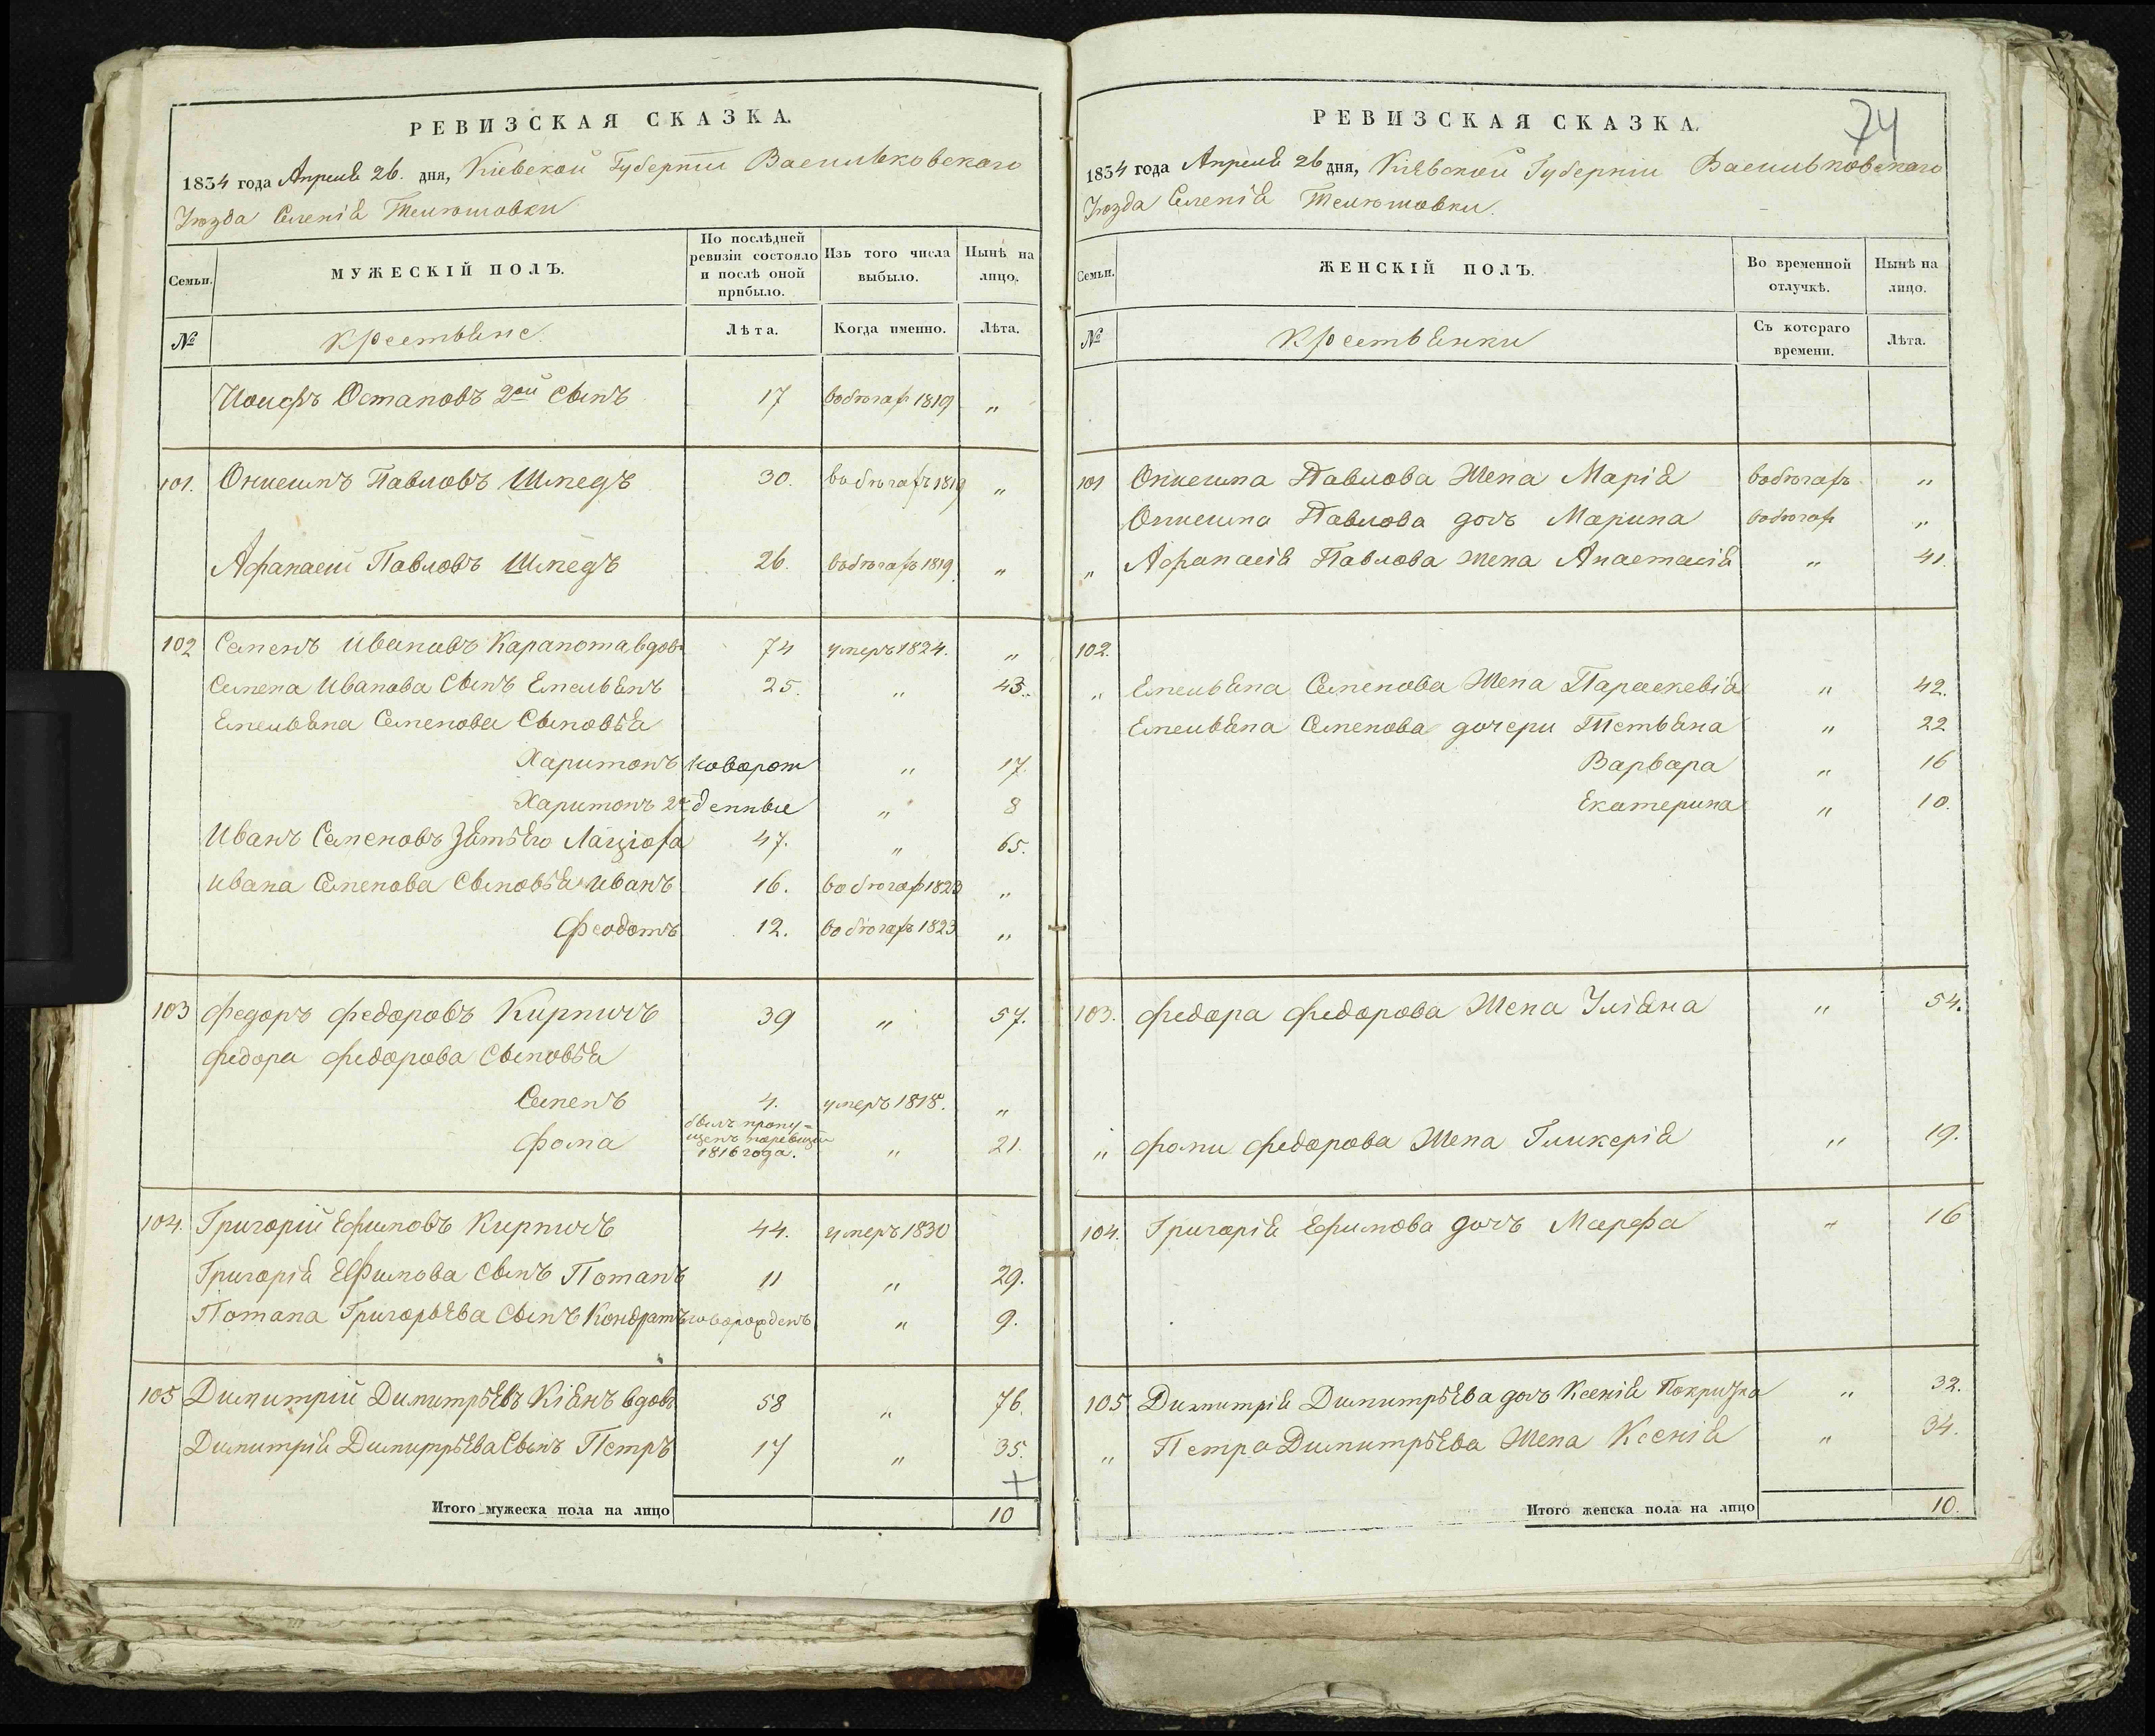 РЕВИЗСКАЯ СКАЗКА.
1834 года Апреля 26. дня, Кіевской Губерніи Васильковскаго
Уюзда Селенія Телюшовки
Семьи.
МУЖЕСКІЙ ПОЛЪ.
По послѣдней ревизіи состояло и послѣ оной прибыло.
Изъ того числа выбыло.
Нынѣ на лицо.
№
Крестьяне.
Лѣта.
Когда именно.
Лѣта.
Иосифъ Остаповъ 2ой Сынъ 17 вобюгах 1819 „
101. Онисимъ Павловъ Шпедъ 30. вобюгахъ 1819 „
Афанасій Павловъ Шпедъ 26. вобюгахъ 1819 „
102 Семенъ Ивановъ Карапота вдовъ 74 умеръ 1824. „
Семена Иванова Сынъ Емельянъ 25. „ 43.
Емельяна Семенова Сыновья
Харитонъ новорож „ 17.
Харитонъ 2й денные „ 8
Иванъ Семеновъ Зять Его 47. „ 65.
Ивана Семенова Сыновья Иванъ 16. вобюгах 1823 „
Феодотъ 12. вобюгахъ 1823 „
103 Федоръ Федоровъ Кирпичъ 39 „ 57.
Федора Федорова Сыновья
Семенъ 4. умеръ 1818. „
Фома былъ пропу=щенъ поревизіи 1816 года. „ 21.
104. Григорій Ефимовъ Кирпичъ 44. умеръ 1830
Григорія Ефимова Сынъ Потапъ 11 „ 29.
Потапа Григорьева Сынъ Кондратъ новорожденъ „ 9.
105 Димитрій Димитрѣевъ Кіянъ вдовъ 58 „ 76.
Димитрія Димитрѣева Сынъ Петръ 17 „ 35.
+
Итого мужеска пола на лицо 10
74
РЕВИЗСКАЯ СКАЗКА.
1834 года Апреля 26 дня, Кіевской Губерніи Васильковскаго
Уюзда Селенія Телюшовки.
Семьи.
ЖЕНСКІЙ ПОЛЪ.
Во временной отлучкѣ.
Нынѣ на лицо.
№
Крестьянки
Съ котораго времени.
Лѣта.
101 Онисима Павлова Жена Марія вобюгахъ „
Онисима Павлова дочь Марина вобюгах „
„ Афанасія Павлова жена Анастасія „ 41.
102.
„ Емельяна Семенова Жена Параскевія „ 42.
Емельяна Семенова дочери Тетьяна „ 22
Варвара „ 16
Екатерина „ 10.
103. Федора Федорова Жена Уліяна „ 54.
„ Фомы Федорова Жена Гликерія „ 19.
104. Григорія Ефимова дочь Марфа „ 16
105. Димитрія Димитрѣева дочь Ксенія „ 32.
„ Петра Димитрѣева Жена Ксенія „ 34.
Итого женска пола на лицо 10.